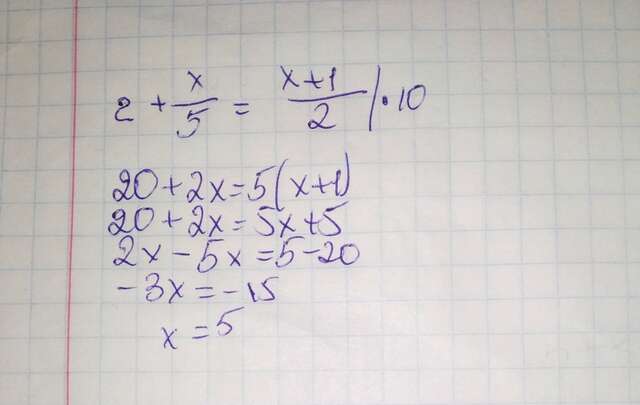 2 + x/5 = (x+1)/2 | · 10
20 + 2x = 5(x+1)
20 + 2x = 5x + 5
2x - 5x = 5 - 20
- 3x = - 15
x = 5